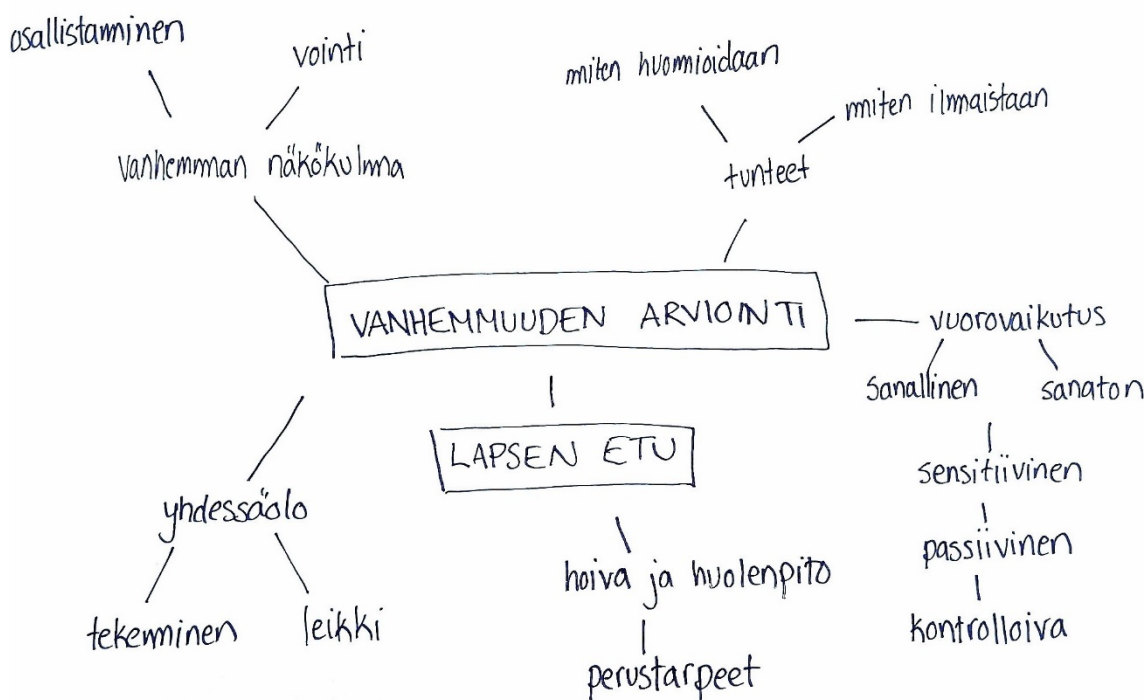 osallistaminen
vointi
vanhemman näkökulma
miten huomioidaan
miten ilmaistaan
tunteet
VANHEMMUUDEN ARVIOINTI
vuorovaikutus
sanallinen
sanaton
sensitiivinen
passiivinen
kontrolloiva
LAPSEN ETU
hoiva ja huolenpito
perustarpeet
yhdessäolo
tekeminen
leikki